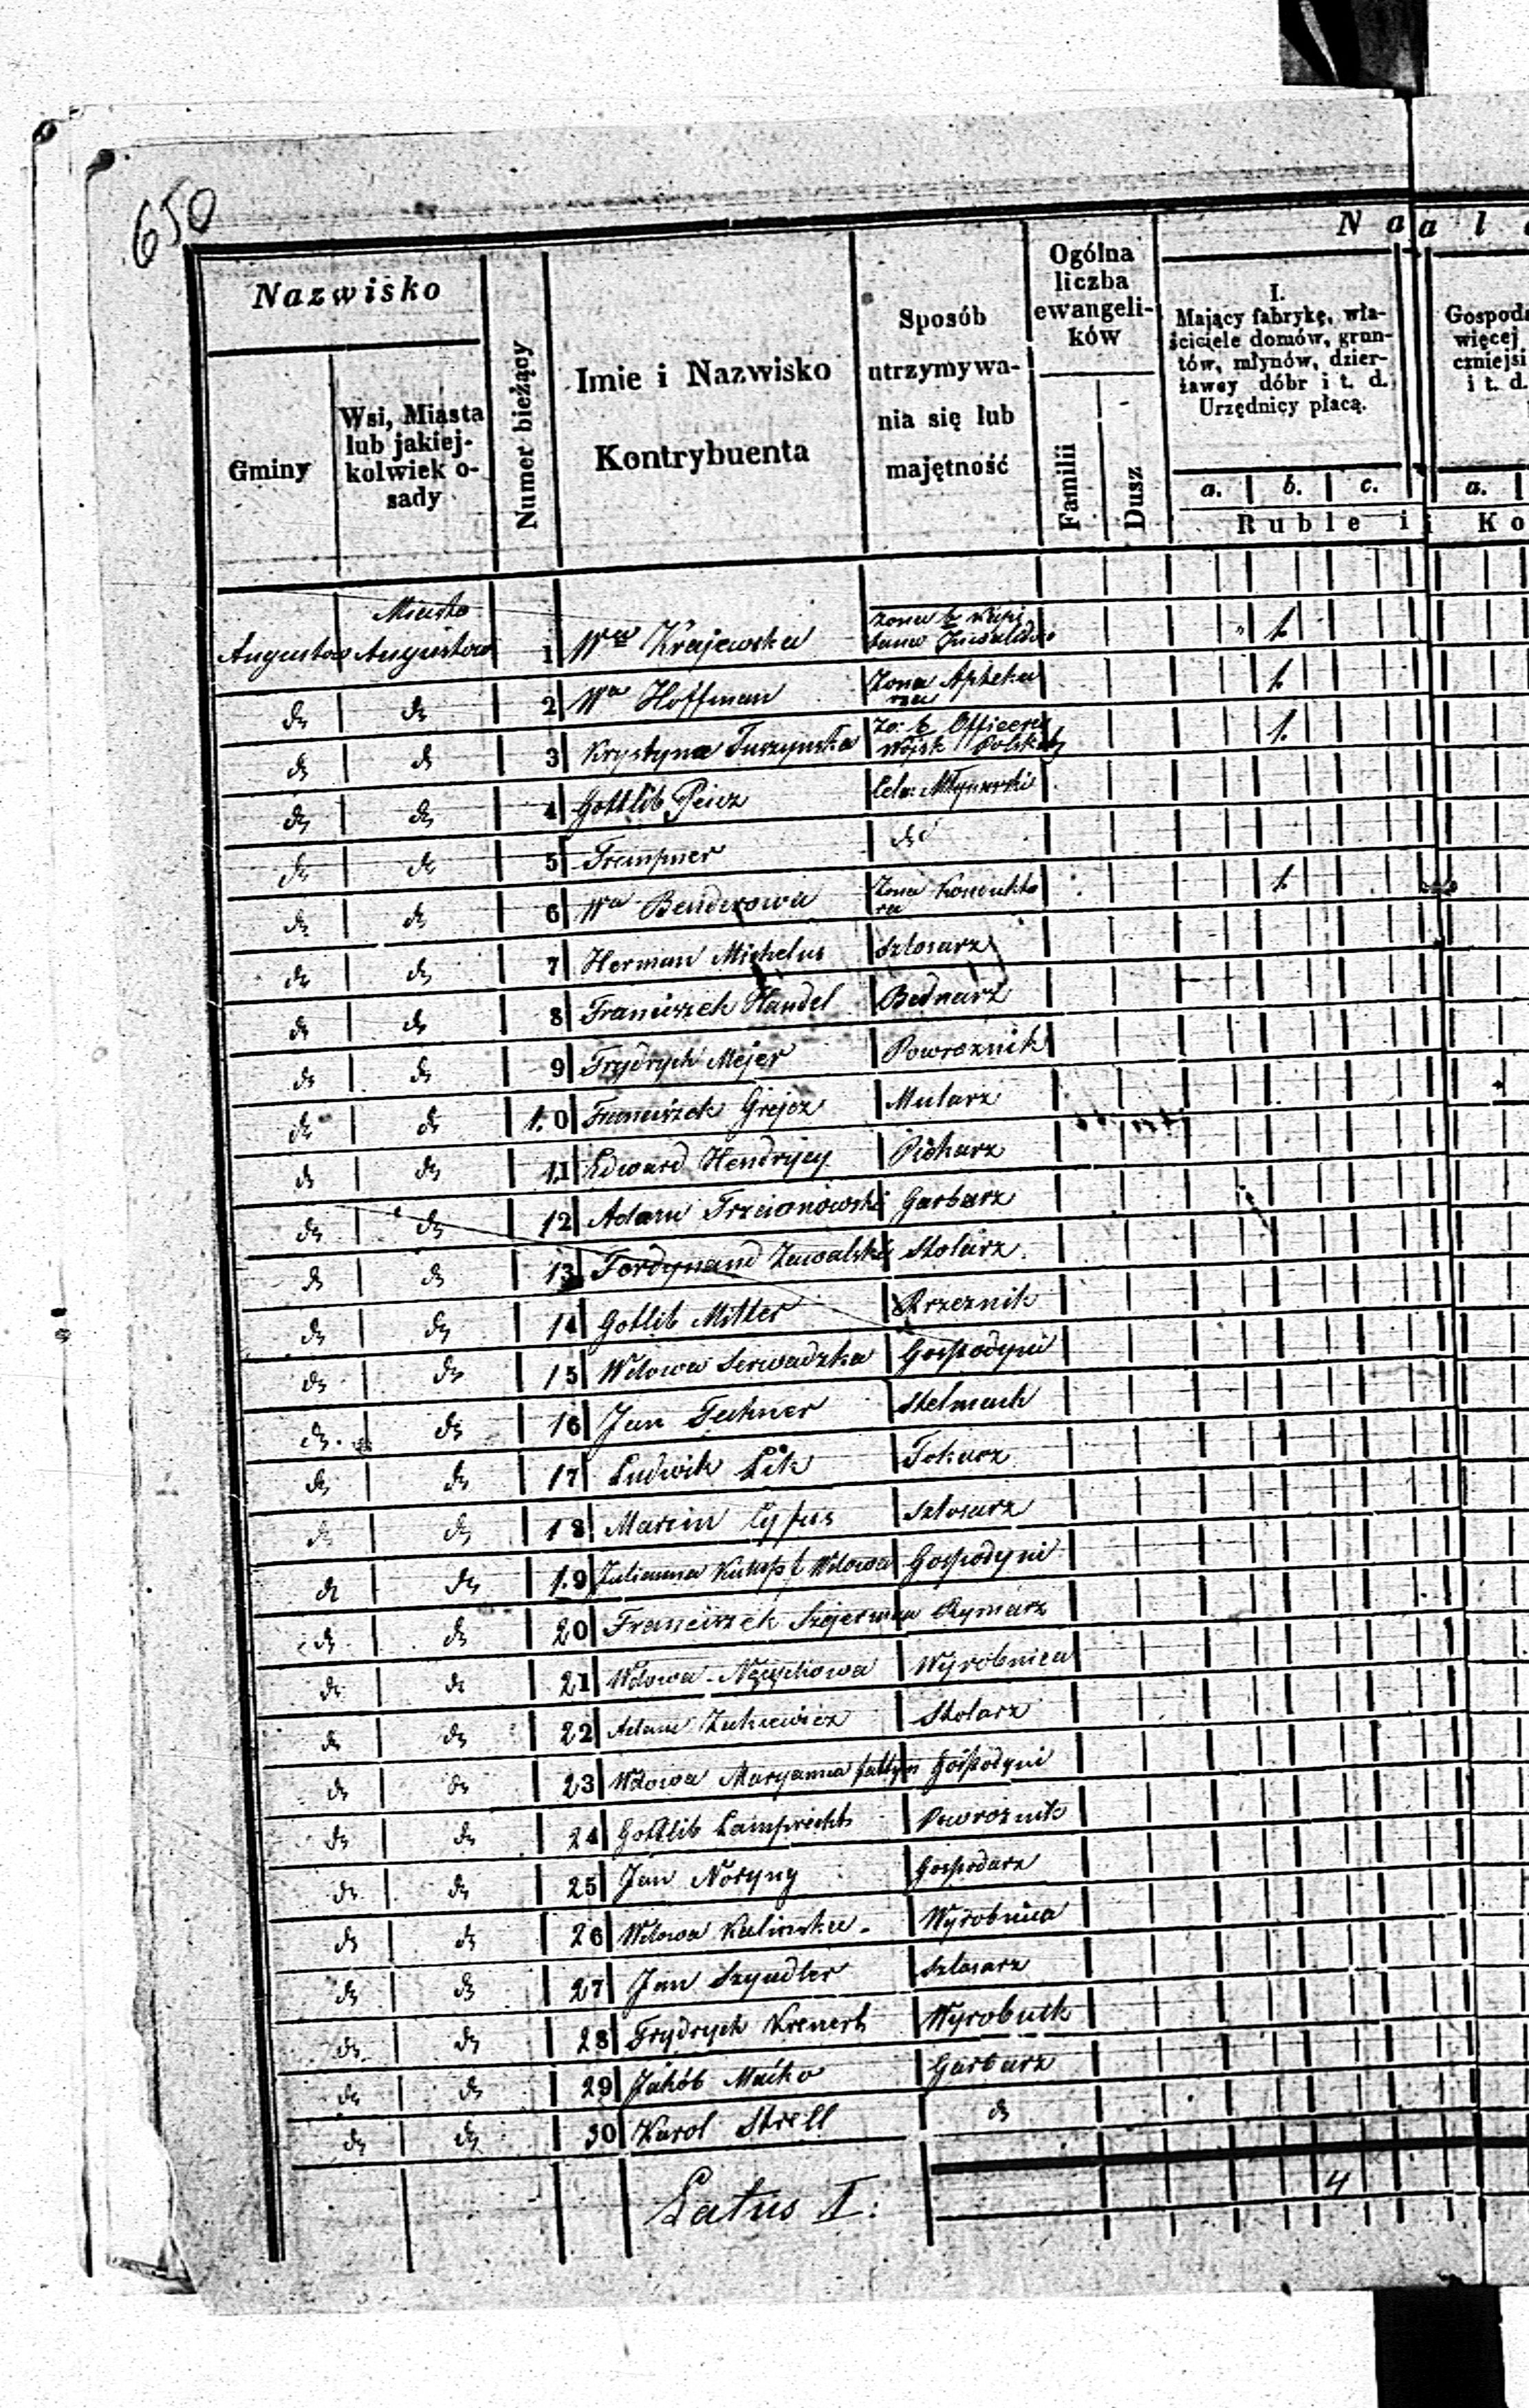 650
Nazwisko
Gminy
Wsi, Miasta
lub jakiej-
kolwiek o-
sady
Numer bieżący
Imie i Nazwisko
Kontrybuenta
Sposób
utrzymywa-
nia się lub
majętność
Ogólna
liczba
ewangeli-
ków
Familii
Dusz
Na al
I.
Mający fabrykę, wła-
ściciele domów, grun-
tów, młynów, dzier-
żawcy dóbr i t. d.
Urzędnicy płacą.
a. b. c.
Ruble i
Gospod
więcej
czniejsi
i t. d.
a.
Ko
Miasto
Augustow Augustow 1 Wa Krajewska żona b Kapi
tana 1
do do 2 Wa Hoffman Żona Apteka
rza 1
do do 3 Krystyna Turzynska Żo: b Officera
Wojsk Polskch 1.
do do 4 Gottlib Peicz Cela: Młynarski
do do 5 Trempner do
do do 6 Wa Benderowa Żona Kondukto
ra 1
do do 7 Herman Michelus Szlosarz
do do 8 Franciszek Handel Bednarz
do do 9 Frydrych Mejer Powroznik
do do 10 Franciszek Grejcz Mularz
do do 11 Edward Hendrycy Piekarz
do do 12 Adam Trzcianowski Garbarz
do do 13 Ferdynand Zawalski Stolarz
do do 14 Gotlib Mitler Rzeznik
do do 15 Wdowa Serwadzka Gospodyni
do do 16 Jan Techner Stelmach
do do 17 Ludwik Lik Tokarz
do do 18 Marcin Cyfus Szlosarz
do do 19 Julianna Wdowa Gospodyni
do do 20 Franciszek Szejerman Rymarz
do do 21 Wdowa Wyrobnica
do do 22 Adam Żukiewicz Stolarz
do do 23 Wdowa Maryanna Gospodyni
do do 24 Gottlib Lamprecht Powroznik
do do 25 Jan Noryng Gospodarz
do do 26 Wdowa Kalinska Wyrobnica
do do 27 Jan Szyndler Szlosarz
do do 28 Frydrych Krenert Wyrobnik
do do 29 Jakób Maiko Garbarz
do do 30 Karol Strell do
Latus I: 4